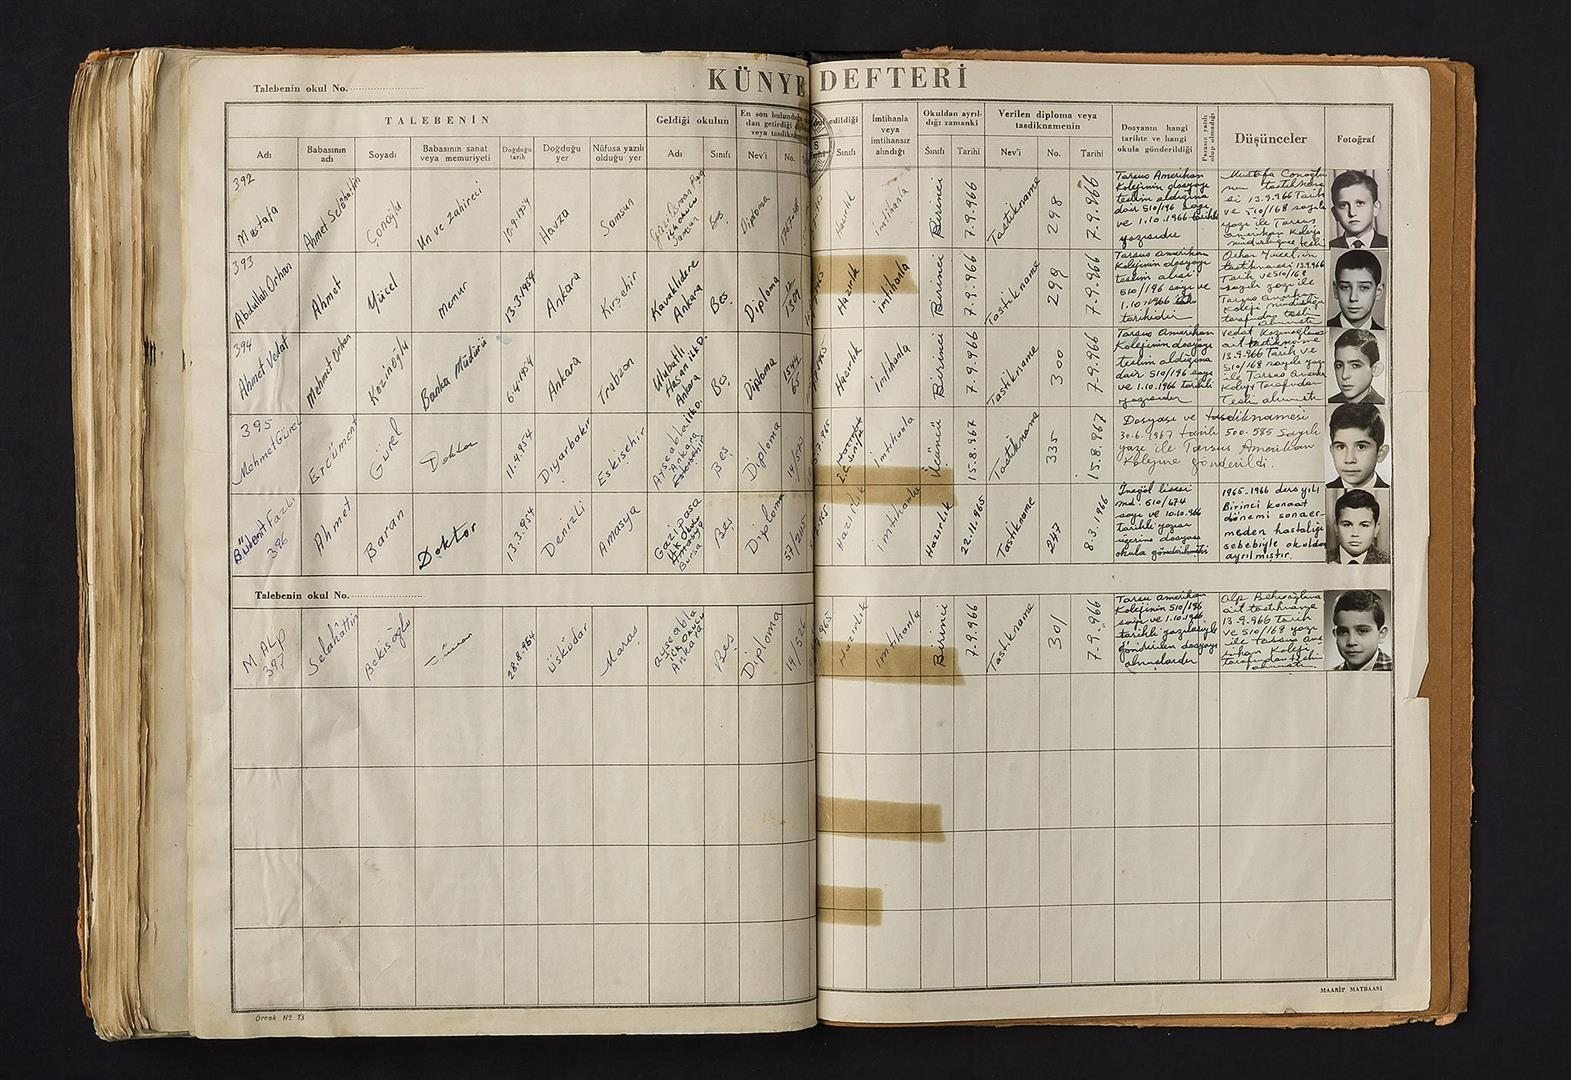 Talebenin okul No.
KÜNYE DEFTERİ
TALEBENİN
Geldiği okulun
En son bulunduğu
dan getirdiği
veya tasdikn
edildiği
İmtihanla
veya
imtihansız
alındığı
Okuldan ayrıl-
dığı zamanki
Verilen diploma veya
tasdiknamenin
Dosyanın hangi
tarihte ve hangi
okula gönderildiği
Parasız yatılı
olup olmadığı
Düşünceler
Fotoğraf
Adı
Babasının
adı
Soyadı
Babasının sanat
veya memuriyeti
Doğduğu
tarih
Doğduğu
yer
Nüfusa yazılı
olduğu yer
Adı
Sınıfı
Nev'i
No.
Sınıfı
Sınıfı
Tarihi
Nev'i
No.
Tarihi
392
Mustafa
Ahmet Selâhattin
Conoğlu
Un ve zahireci
10.9.1954
Havza
Samsun
Beş
Diploma
Hazırlık
İmtihanla
Birinci
7.9.966
Tastikname
298
7.9.966
Tarsus Amerikan
Kolejinin dosyayı
teslim aldığına
dair 510/196 sayı
ve 1.10.1966 tarihli
yazısıdır
Mustafa Conoğlu
nun tastikname
si 13.9.966 Tarih
ve 510/168 sayılı
yazı ile Tarsus
Amerikan Koleji
müdürlüğüne
393
Abdullah Orhan
Ahmet
Yücel
Memur
13.3.1954
Ankara
Kırşehir
Kavaklıdere
Ankara
Beş
Diploma
Hazırlık
İmtihanla
Birinci
7.9.966
Tastikname
299
7.9.966
Tarsus Amerikan
Kolejinin dosyayı
teslim
510/196 sayı ve
1.10.1966
tarihidir
Orhan Yücel'in
tastiknamesi 13.9.966
Tarih ve 510/168
sayılı yazı ile
Tarsus Amerikan
Koleji
tarafından teslim
alınmıştır
394
Ahmet Vedat
Mehmet Orhan
Kozinoğlu
Banka Müdürü
6.4.1954
Ankara
Trabzon
Ulubatlı
Hasan ilk O.
Ankara
Beş
Diploma
Hazırlık
İmtihanla
Birinci
7.9.966
Tastikname
300
7.9.966
Tarsus Amerikan
Kolejinin dosyayı
teslim aldığına
dair 510/196 sayı
ve 1.10.1966 tarihli
yazısıdır
Vedat Kozinoğluna
ait tastikname
13.9.966 Tarih ve
510/168 sayılı yazı
ile Tarsus Amerikan
Koleji Tarafından
Teslim alınmıştır
395
Mahmet Gürel
Ercüment
Gürel
Doktor
11.4.954
Diyarbakır
Eskişehir
Ayşeabla ilk O.
Ankara
Beş
Diploma
İmtihanla
Üçüncü
15.8.967
Tastikname
335
15.8.967
Dosyası ve tasdiknamesi
30.6.1967 tarihli 500.585 Sayılı
yazı ile Tarsus Amerikan
Kolejine gönderildi.
Bülent Fazlı
396
Ahmet
Baran
Doktor
13.3.954
Denizli
Amasya
Gazipaşa
ilk Okulu
Amasya
Bursa
Beş
Diploma
37/205
Hazırlık
İmtihanla
Hazırlık
22.11.965
Tastikname
247
8.3.1966
İnegöl lisesi
md. 510/674
sayı ve 10.10.966
tarihli yazısı
üzerine dosyası
okula gönderilmiştir
1965-1966 ders yılı
Birinci kanaat
dönemi sona er-
meden hastalığı
sebebiyle okuldan
ayrılmıştır.
Talebenin okul No.
M. ALP
397
Selahattin
Bekişoğlu
28.8.954
Üsküdar
Maraş
Ayşeabla
ilk Okulu
Ankara
Beş
Diploma
14/526
Hazırlık
İmtihanla
Birinci
7.9.966
Tastikname
301
7.9.966
Tarsus Amerikan
Kolejinin 510/196
sayı ve 1.10.1966
tarihli yazılarıyla
gönderilen dosyayı
almışlardır
13.9.966 tarih
ve 510/168 yazı
ile Tarsus Ame
rikan Koleji
tarafından teslim
alınmıştır.
Örnek No 13
MAARİF MATBAASI